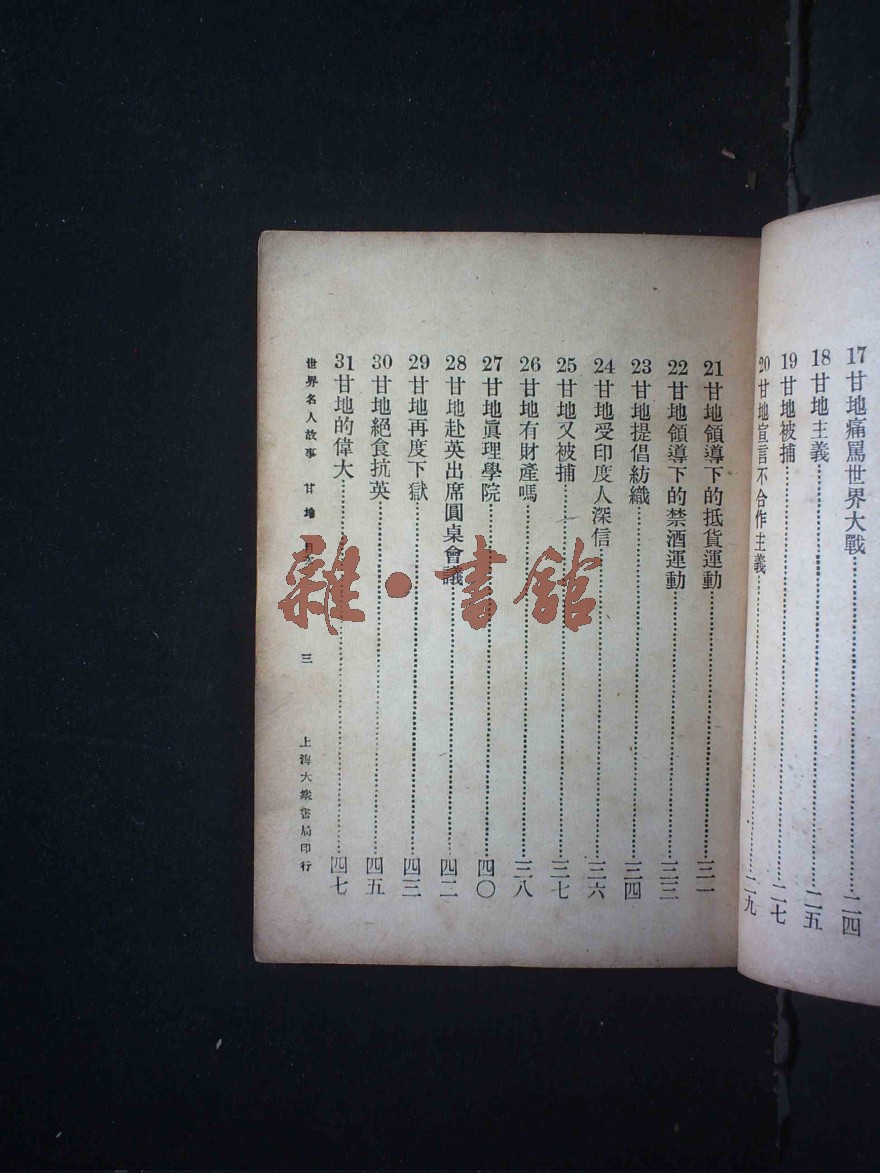 17 甘地痛罵世界大戰……二四
18 甘地主義……二五
19 甘地被捕……二七
20 甘地宣言不合作主義……二九
21 甘地領導下的抵貨運動……三一
22 甘地領導下的禁酒運動……三三
23 甘地提倡紡織……三四
24 甘地受印度人深信……三六
25 甘地又被捕……三七
26 甘地有財產嗎……三八
27 甘地眞理學院……四〇
28 甘地赴英出席圓桌會議……四二
29 甘地再度下獄……四三
30 甘地絕食抗英……四五
31 甘地的偉大……四七
世界名人故事 甘地 目 三 上海大衆書局印行
雜·書館